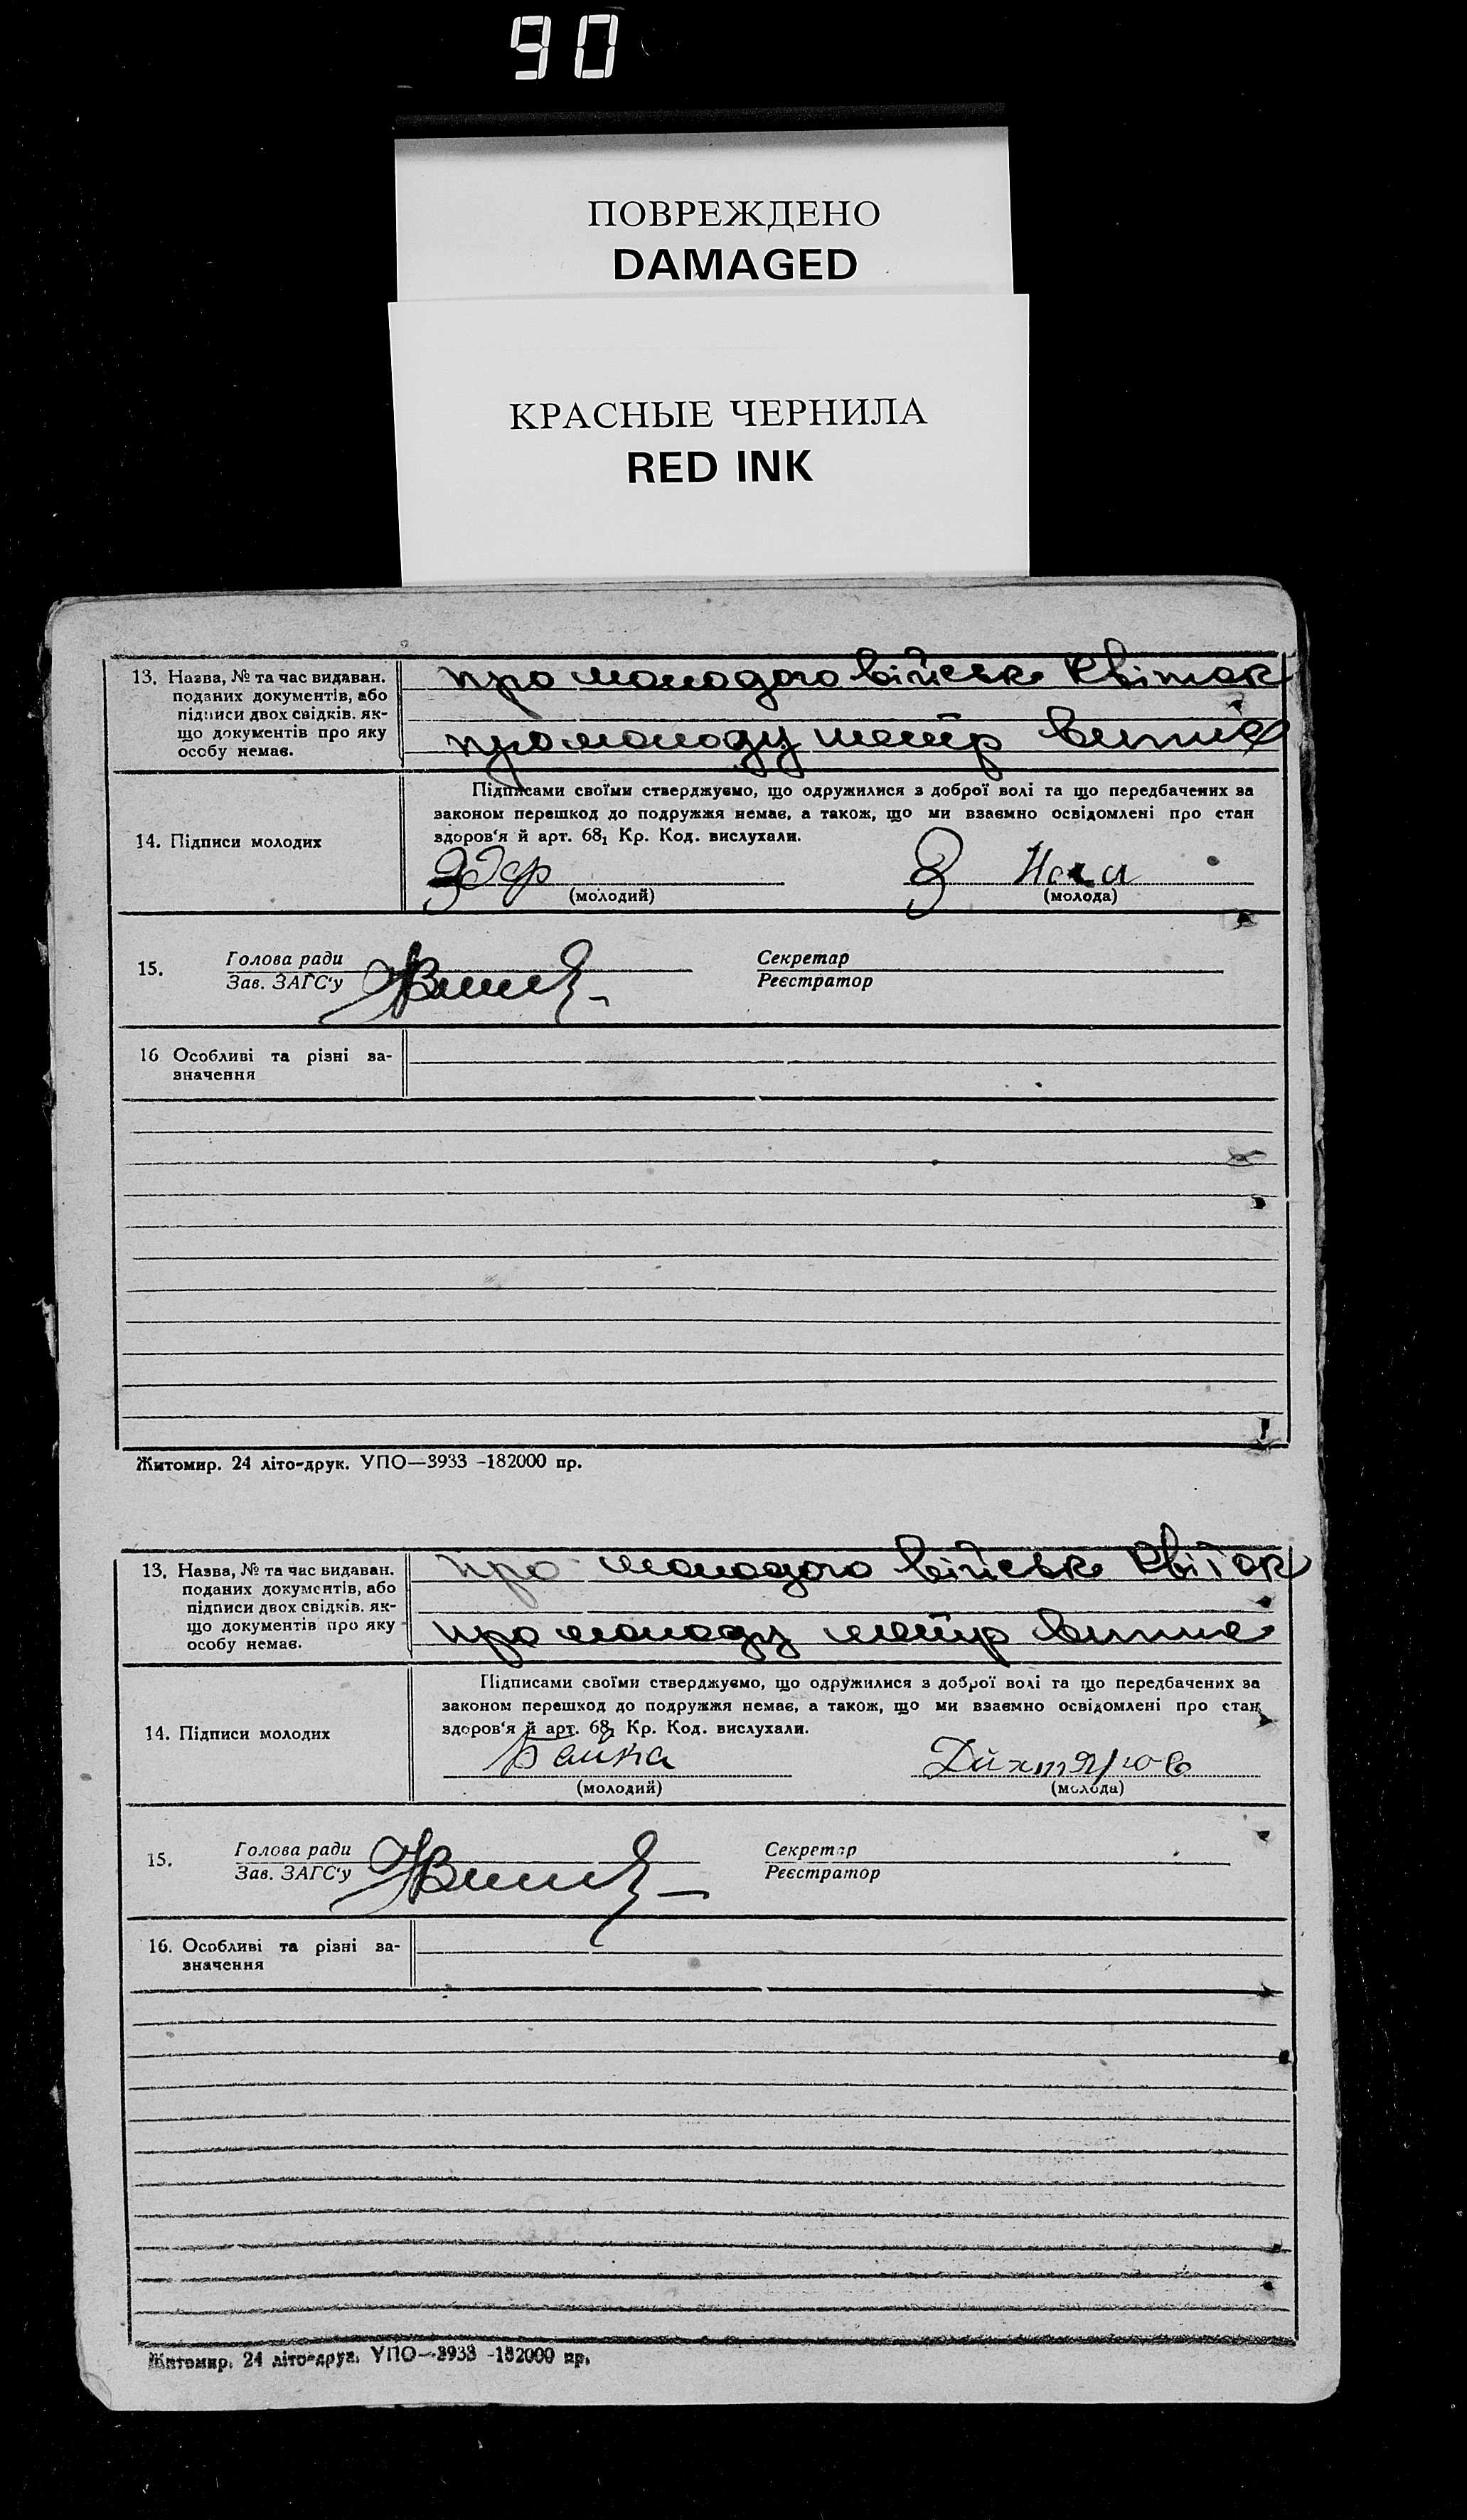 90
ПОВРЕЖДЕНО
DAMAGED
КРАСНЫЕ ЧЕРНИЛА
RED INK
13. Назва, № та час видаван. поданих документів, або підписи двох свідків. якщо документів про яку особу немає.
про молодого військ Квіток
про молоду метр випис
Підписами своїми стверджуємо, що одружилися з доброї волі та що передбачених за
законом перешкод до подружжя немає, а також, що ми взаємно освідомлені про стан
здоров'я й арт. 68, Кр. Код. вислухали.
14. Підписи молодих
(молодий) (молода)
15. Голова ради Секретар
Зав. ЗАГС'у Реєстратор
16 Особливі та різні за-
значення
Житомир. 24 літо-друк. УПО—3933 -182000 пр.
13. Назва, № та час видаван. поданих документів, або підписи двох свідків. якщо документів про яку особу немає.
про молодого військ Квіток
про молоду метр випис
Підписами своїми стверджуємо, що одружилися з доброї волі та що передбачених за
законом перешкод до подружжя немає, а також, що ми взаємно освідомлені про стан
здоров'я й арт. 68, Кр. Код. вислухали.
14. Підписи молодих
(молодий) (молода)
15. Голова ради Секретар
Зав. ЗАГС'у Реєстратор
16. Особливі та різні за-
значення
Житомир. 24 літо-друк. УПО—3933 -182000 пр.